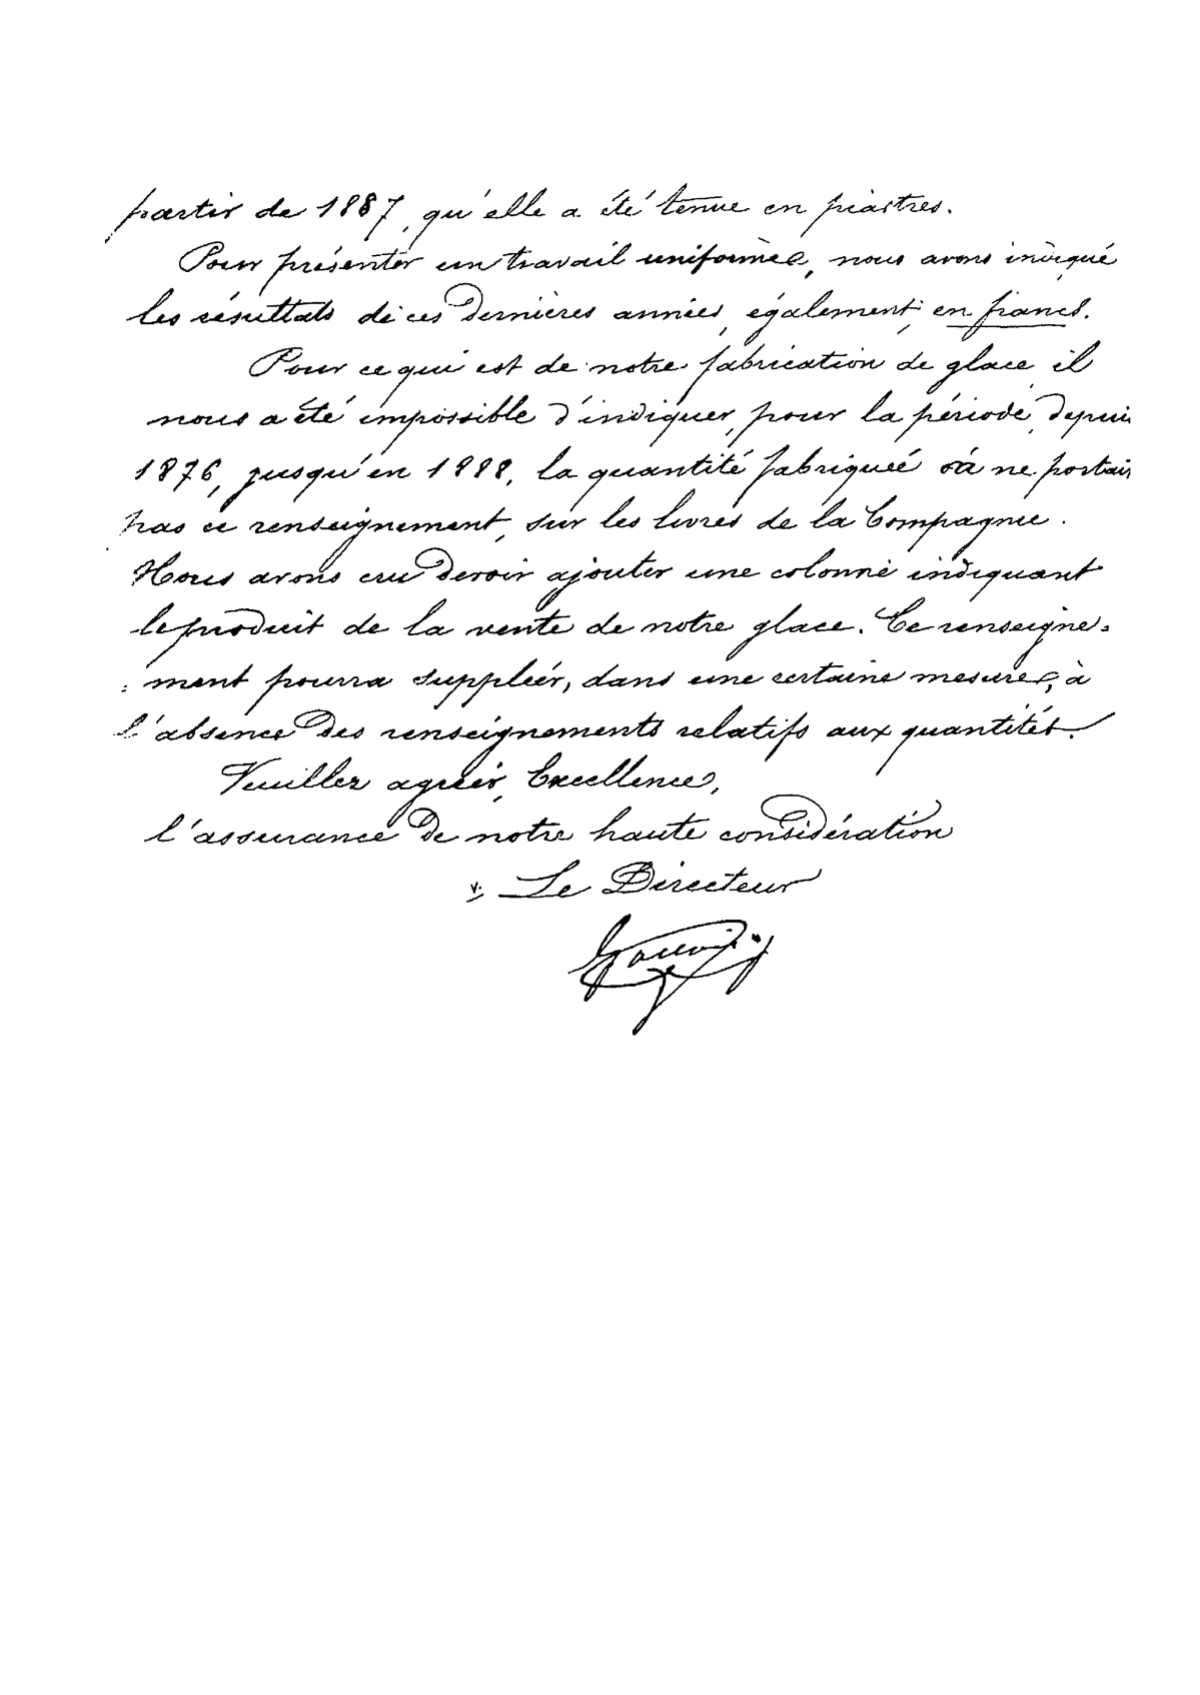 partir de 1887, qu'elle a été tenue en piastres.
Pour présenter un travail uniforme, nous avons indiqué
les résultats de ces dernières années, également, en francs.
Pour ce qui est de notre fabrication de glace, il
nous a été impossible d'indiquer, pour la période, depuis
1876, jusqu'en 1888, la quantité fabriquée
pas ce renseignement, sur les livres de la Compagnie.
Nous avons cru devoir ajouter une colonne indiquant
le produit de la vente de notre glace. Ce renseigne=
=ment pourra suppléer, dans une certaine mesure, à
l'absence des renseignements relatifs aux quantités.
Veuillez agréer, Excellence,
l'assurance de notre haute considération
Le Directeur